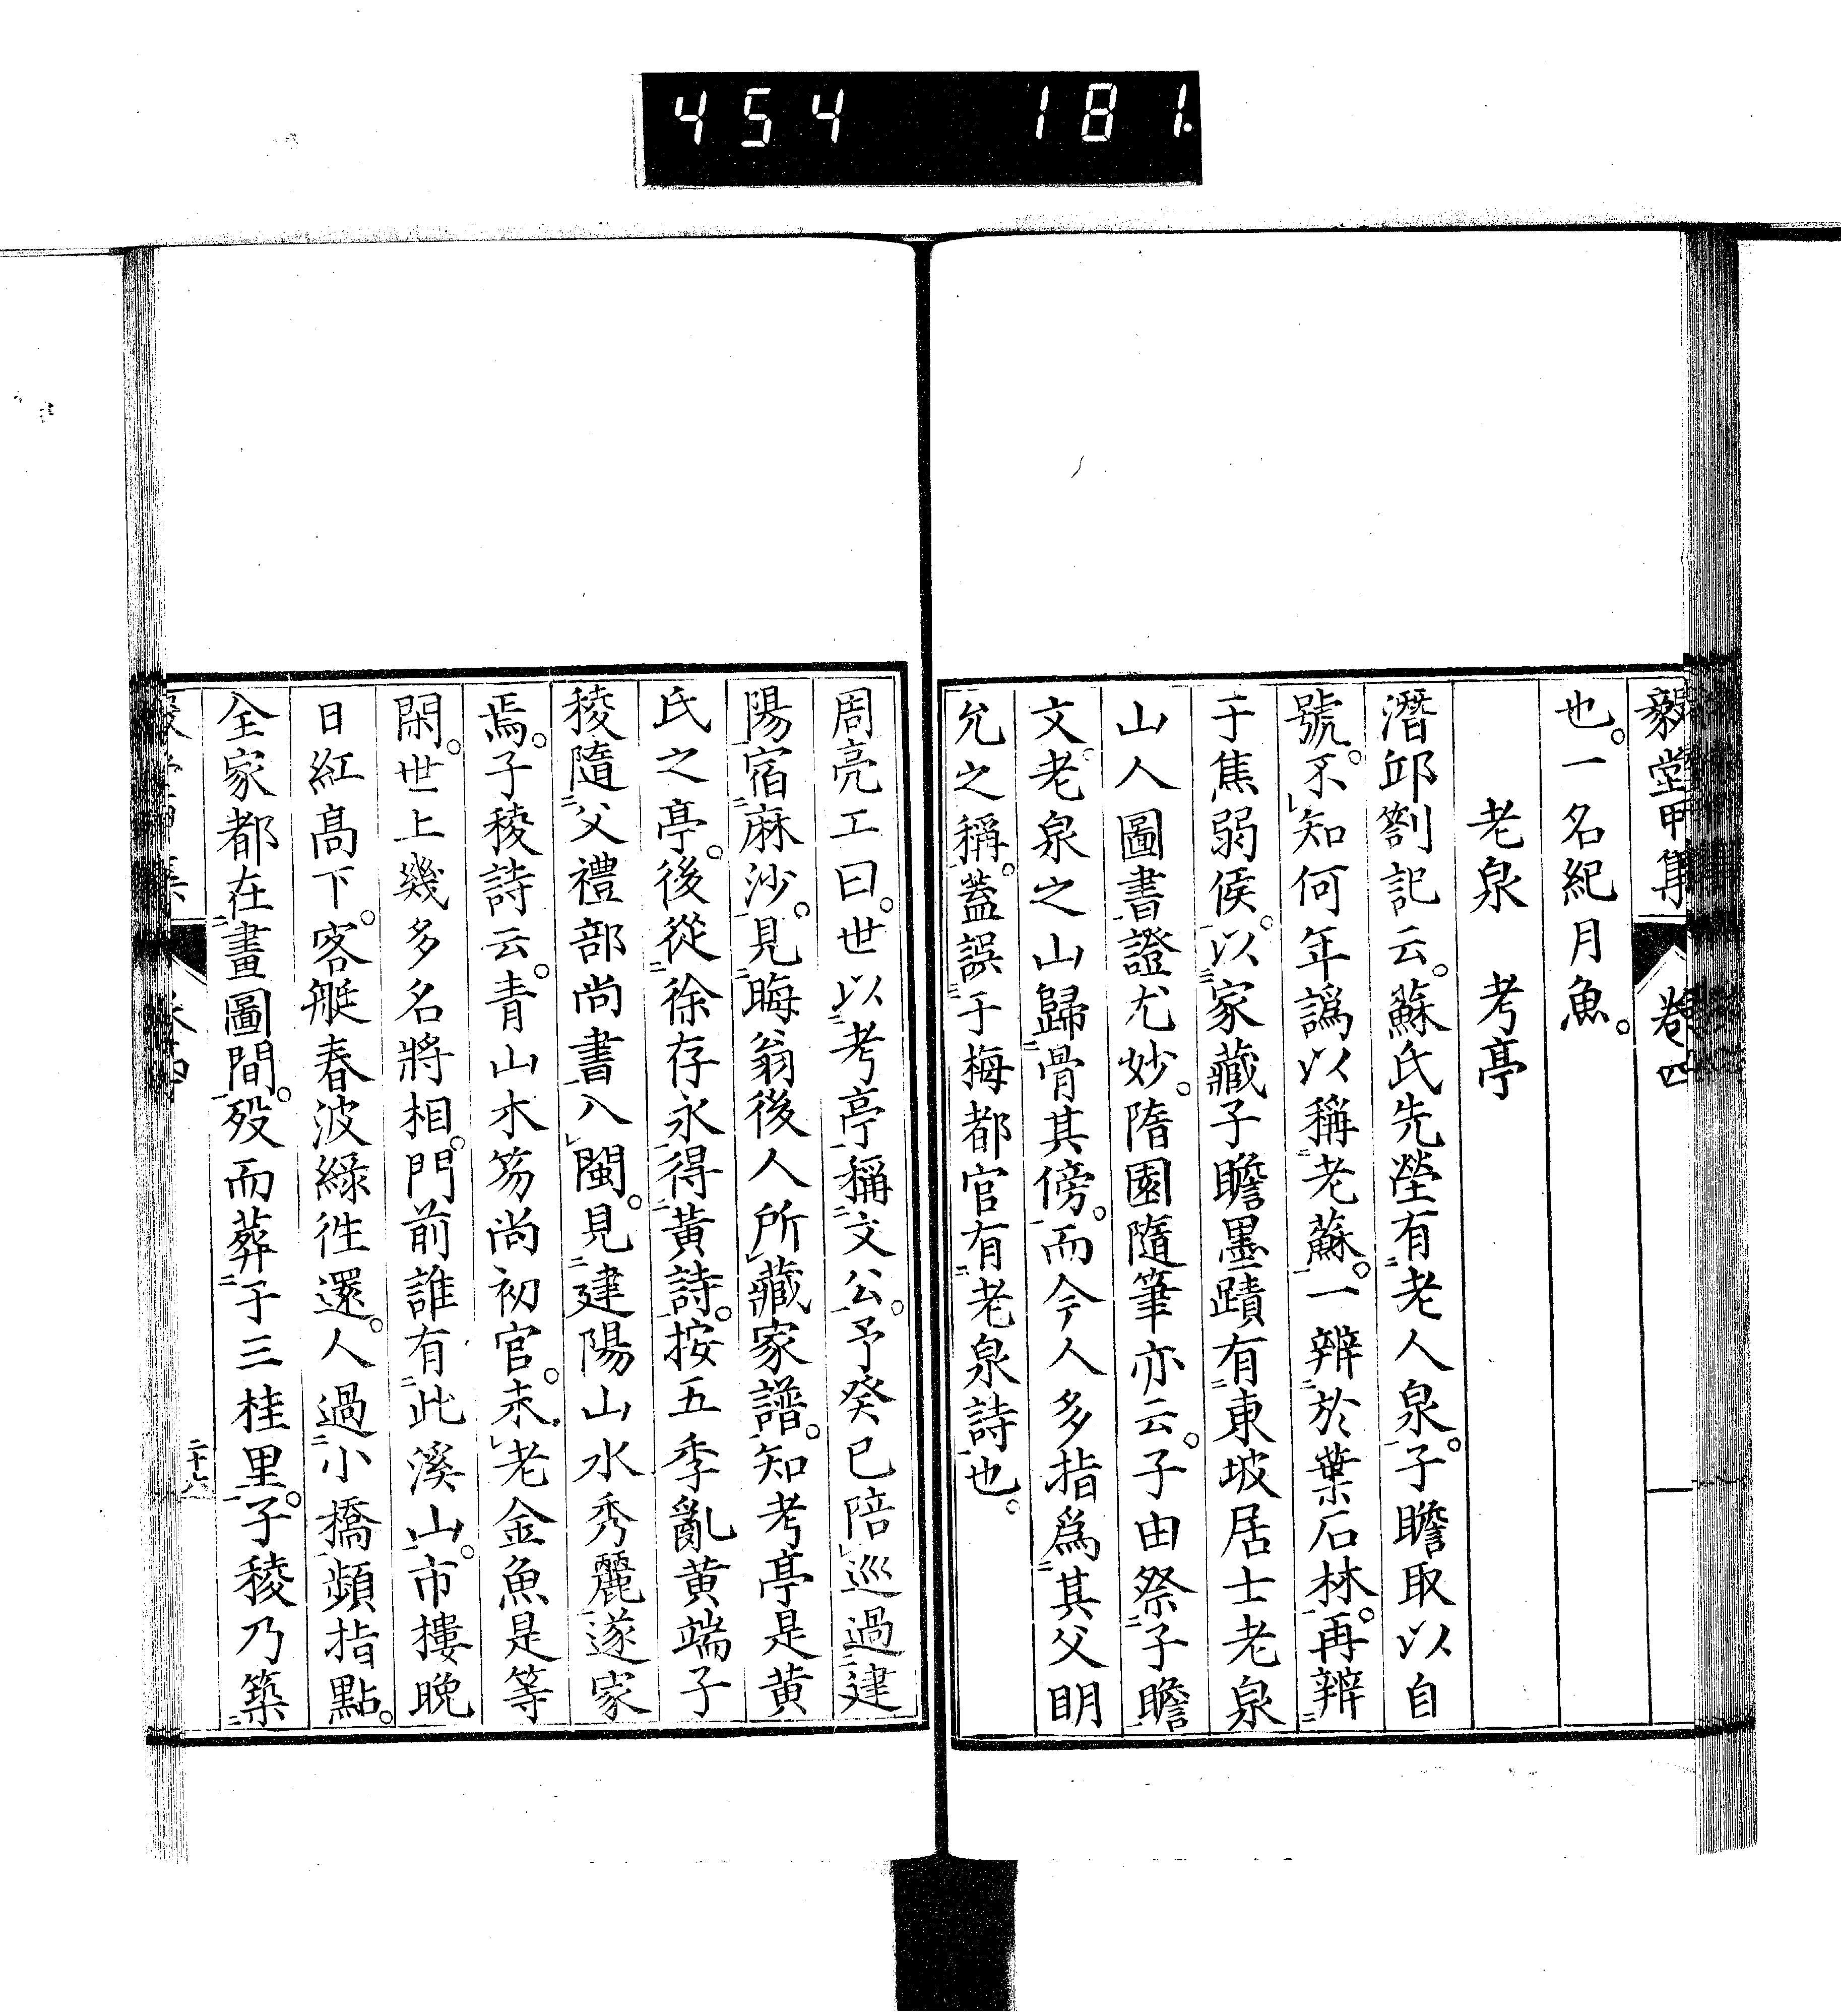 454 181
毅堂甲集 卷四
也。一名紀月魚。
老泉 考亭
潛邱劄記云。蘇氏先塋有二老人泉一。子瞻取以自
號。不レ知何年譌以稱二老蘇一。一辨二於葉石林一。再辨二
于焦弱侯一。以三家藏子瞻墨蹟有二東坡居士老泉
山人圖書一證尤妙。隋園隨筆亦云。子由祭二子瞻一
文。老泉之山歸二骨其傍一。而今人多指爲二其父明
允之稱一。蓋誤二于梅都官有二老泉詩一也。
周亮工曰。世以二考亭一稱二文公一。予癸巳陪レ巡過二建
陽一宿二麻沙一。見二晦翁後人所レ藏家譜一。知考亭是黄
氏之亭。後從二徐存永一得二黃詩一。按五季亂黄端子
稜隨二父禮部尚書一入レ閩。見二建陽山水秀麗一遂家
焉。子稜詩云。青山木笏尚初官。未レ老金魚是等
閑。世上幾多名將相。門前誰有二此溪山一。市摟晚
日紅高下。客艇春波綠徃還。人過二小橋一頻指點。
全家都在二畫圖間一。歿而葬二于三桂里一。子稜乃築二
二十六